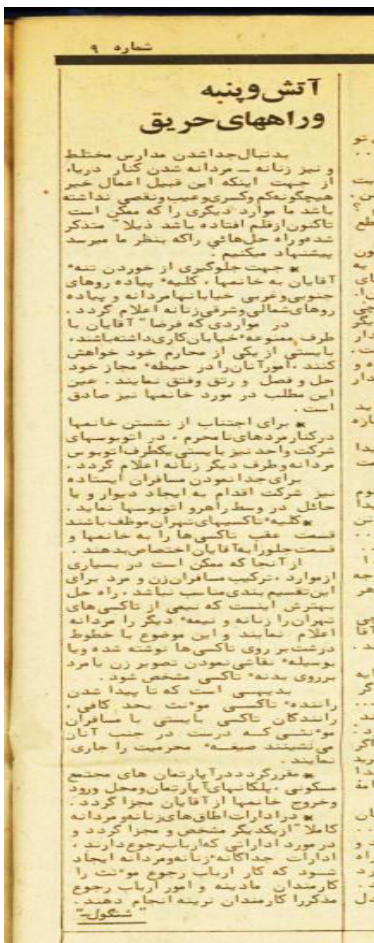 شماره ۹
آتش و پنبه
و راههای حریق
بدنبال جداشدن مدارس مختلط
و نیز زنانه ــ مردانه شدن کنار دریا،
از جهت اینکه این قبیل اعمال خیر
هیچگونه کم و کسری و عیب و نقصی نداشته
باشد ما موارد دیگری را که ممکن است
تاکنون از قلم افتاده باشد ذیلا" متذکر
شده و راه حل‌هائی را که بنظر ما میرسد
پیشنهاد میکنیم .
* جهت جلوگیری از خوردن تنهٔ
آقایان به خانمها ، کلیهٔ پیاده روهای
جنوبی و غربی خیابانها مردانه و پیاده
روهای شمالی و شرقی زنانه اعلام گردد .
در مواردی که فرضا" آقایان با
طرف ممنوعهٔ خیابان کاری داشته باشند،
بایستی از یکی از محارم خود خواهش
کنند ، امور آنان را در حیطهٔ مجاز خود
حل و فصل و رتق و فتق نمایند . عین
این مطلب در مورد خانمها نیز صادق
است .
* برای اجتناب از نشستن خانمها
در کنار مردهای نامحرم ، در اتوبوسهای
شرکت واحد نیز بایستی یکطرف اتوبوس
مردانه و طرف دیگر زنانه اعلام گردد .
برای جدا نمودن مسافران ایستاده
نیز شرکت اقدام به ایجاد دیوار و یا
حائل در وسط راهرو اتوبوسها نماید .
* کلیهٔ تاکسیهای تهران موظف باشند
قسمت عقب تاکسی‌ها را به خانمها و
قسمت جلو را به آقایان اختصاص بدهند .
از آنجا که ممکن است در بسیاری
از موارد ، ترکیب مسافران زن و مرد برای
این تقسیم بندی مناسب نباشد ، راه حل
بهترش اینست که نیمی از تاکسی‌های
تهران را زنانه و نیمهٔ دیگر را مردانه
اعلام نمایند و این موضوع با خطوط
درشت بر روی تاکسی‌ها نوشته شده و یا
بوسیلهٔ نقاشی نمودن تصویر زن یا مرد
بر روی بدنهٔ تاکسی مشخص شود .
بدیهی است که تا پیدا شدن
رانندهٔ تاکسی موٴنث بحد کافی ،
رانندگان تاکسی بایستی با مسافران
موٴنثی که درست در جنب آنان
می‌نشینند صیغهٔ محرمیت را جاری
نمایند .
* مقرر گردد در آپارتمان های مجتمع
مسکونی ، پلکانهای آپارتمان و محل ورود
و خروج خانمها از آقایان مجزا گردد .
* در ادارات اطاق‌های زنانه و مردانه
کاملا" از یکدیگر مشخص و مجزا گردد و
در مورد اداراتی که ارباب رجوع دارند ،
ادارات جداگانهٔ زنانه و مردانه ایجاد
شود که کار ارباب رجوع موٴنث را
کارمندان مادینه و امور ارباب رجوع
مذکر را کارمندان نرینه انجام دهند .
"شنگول"